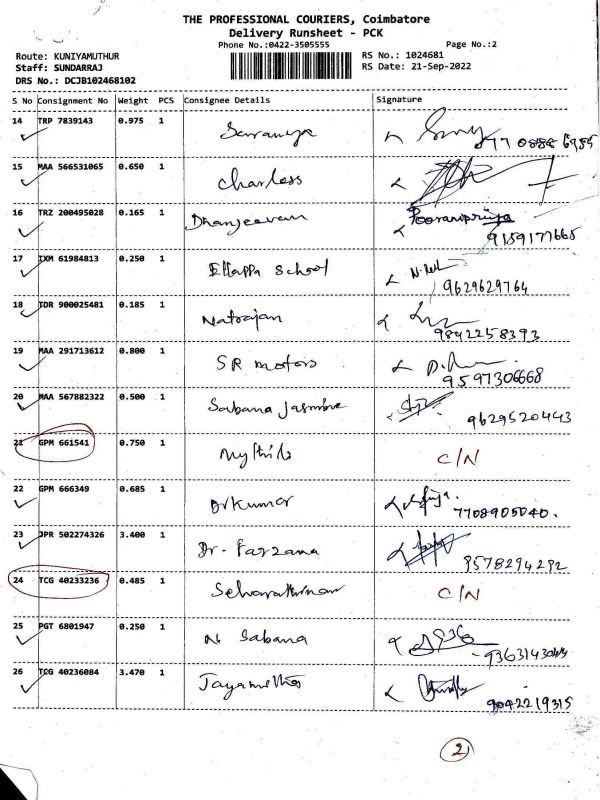 THE PROFESSIONAL COURIERS, Coimbatore
Delivery Runsheet - PCK
Phone No.:0422-3505555 Page No.:2
Route: KUNIYAMUTHUR RS No.: 1024681
Staff: SUNDARRAJ RS Date: 21-Sep-2022
DRS No.: DCJB102468102
S No Consignment No Weight PCS Consignee Details Signature
14 TRP 7839143 0.975 1 Saranya
15 MAA 566531065 0.650 1 Charless
16 TRZ 200495028 0.165 1 Dhanjeevan Pooranipriya
9159177665
17 IXM 61984813 0.250 1 Ellappa School
9629629764
18 TDR 900025481 0.185 1 Natrajan
9842258393
19 MAA 291713612 0.800 1 SR motors
9597306668
20 MAA 567882322 0.500 1 Sabana Jasmine
9629520443
21 GPM 661541 0.750 1 C/N
22 GPM 666349 0.685 1 Drkumar
7708905040.
23 JPR 502274326 3.400 1 Dr. Farzana
9578294292
24 TCG 40233236 0.485 1 C/N
25 PGT 6801947 0.250 1 N Sabana
26 TCG 40236084 3.470 1
9042219315
2